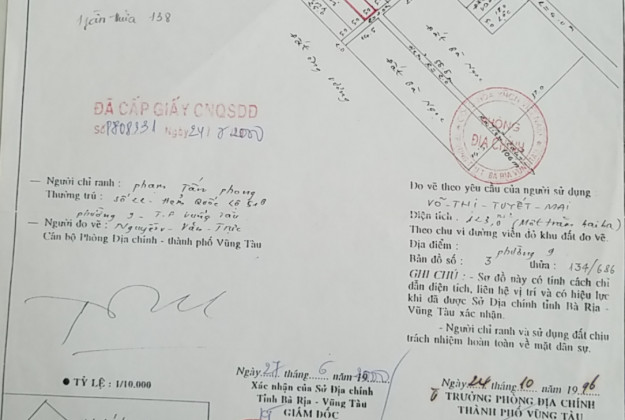 138
Đất ông Vương
Đất Bà Ngọc
Đất Bà Ngọc
ĐÃ CẤP GIẤY CNQSDĐ
Số Ngày 24/
PHÒNG
ĐỊA CHÍNH
— Người chỉ ranh : phạm Tấn phong
Thường trú : số
phường 9 - T.P vũng tàu
— Người đo vẽ : Nguyễn - Văn - Trúc
Cán bộ Phòng Địa chính - thành phố Vũng Tàu
Đo vẽ theo yêu cầu của người sử dụng
VÕ - THỊ - TUYẾT - MAI
Diện tích : 123,0 m² (Một trăm hai ba)
Theo chu vi đường viền đỏ khu đất đo vẽ.
Địa điểm : phường 9
Bản đồ số : 3 thửa : 134/686
GHI CHÚ : - Sơ đồ này có tính cách chỉ
dẫn diện tích, liên hệ vị trí và có hiệu lực
khi đã được Sở Địa chính tỉnh Bà Rịa -
Vũng Tàu xác nhận.
- Người chỉ ranh và sử dụng đất chịu
trách nhiệm hoàn toàn về mặt dân sự.
● TỶ LỆ : 1/10.000
Ngày 27 tháng 6 năm 2000
Xác nhận của Sở Địa chính
Tỉnh Bà Rịa - Vũng Tàu
GIÁM ĐỐC
Ngày 24 tháng 10 năm 1996
TRƯỞNG PHÒNG ĐỊA CHÍNH
THÀNH PHỐ VŨNG TÀU